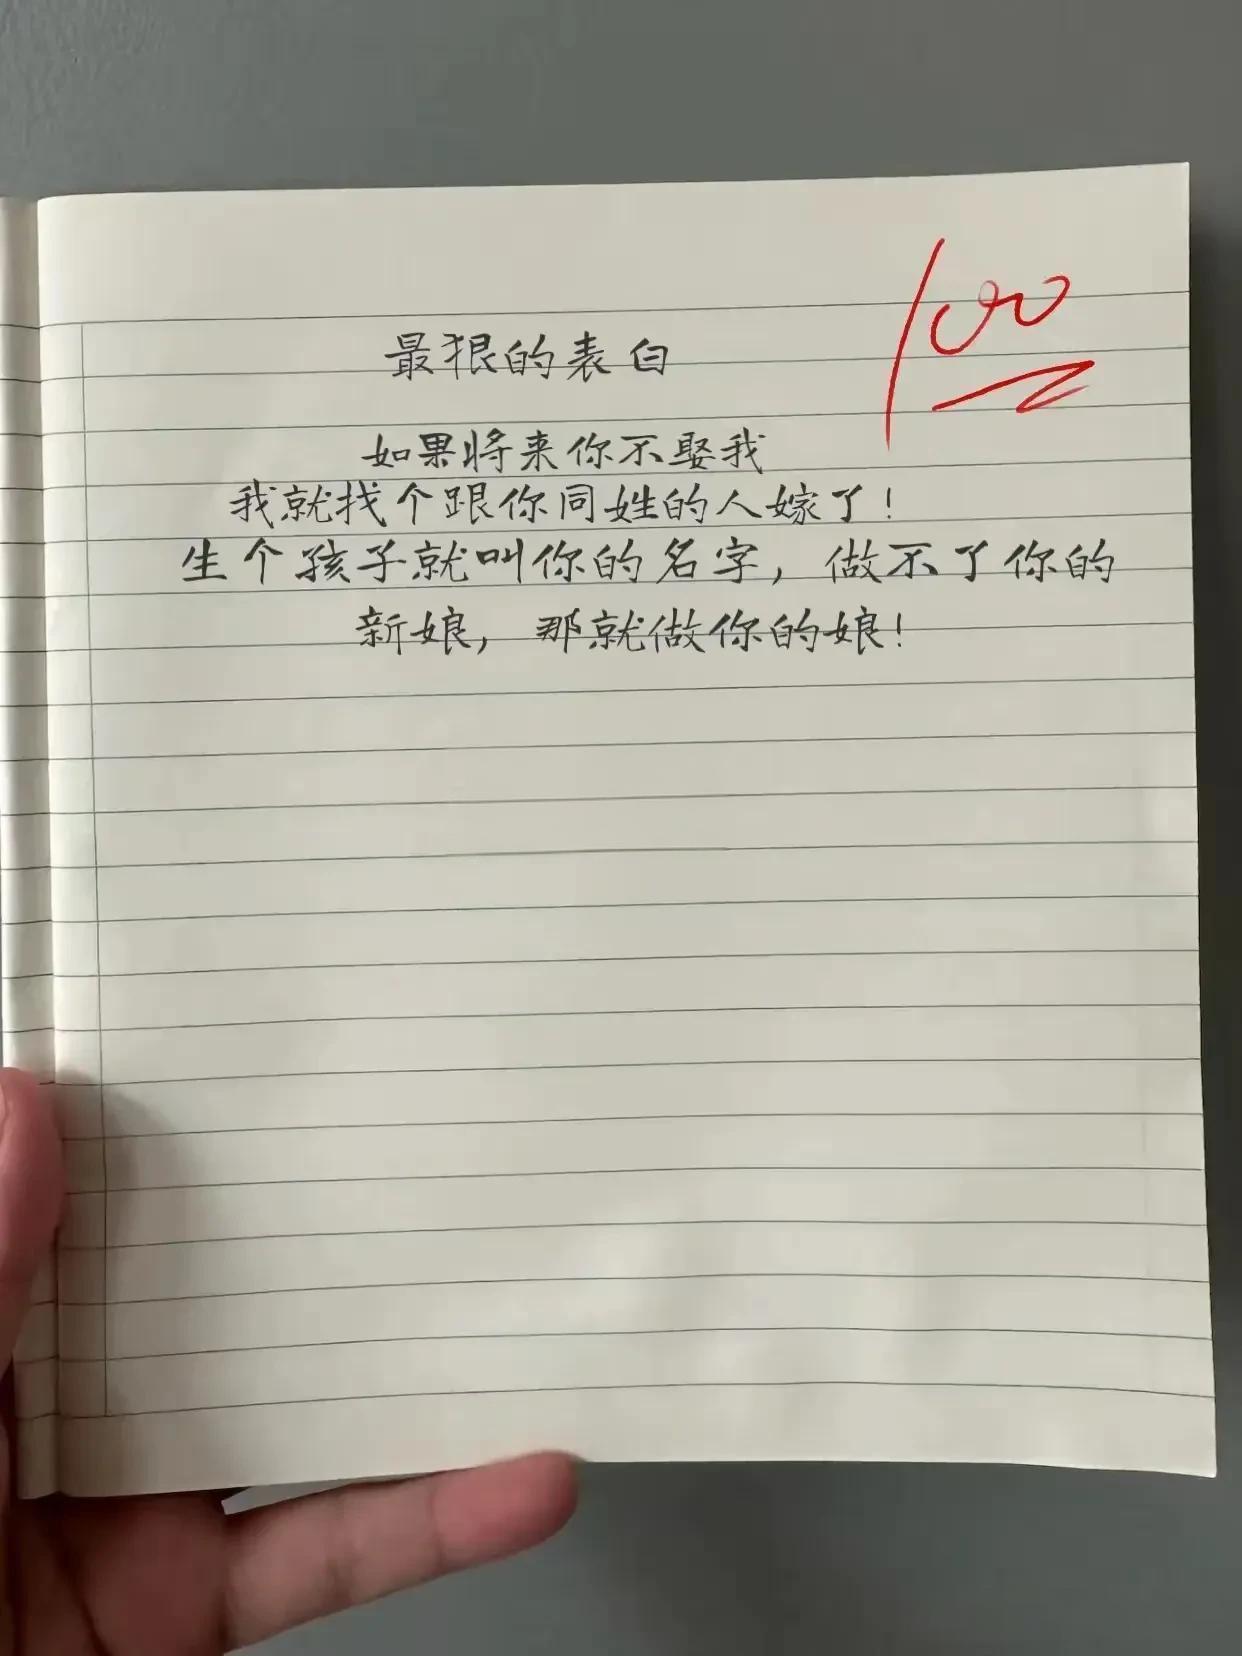 100
最狠的表白
如果将来你不娶我
我就找个跟你同姓的人嫁了!
生个孩子就叫你的名字，做不了你的
新娘，那就做你的娘!